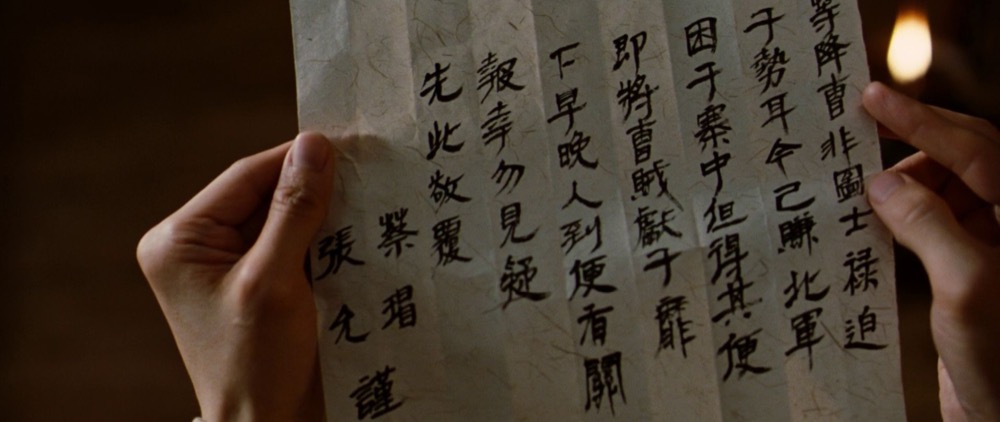 等降曹非圖士禄迫
于勢耳今己賺北軍
困于寨中但得其便
即將曹賊獻于麾
下早晚人到便有關
報幸勿見疑
先此敬覆
蔡瑁
張允謹